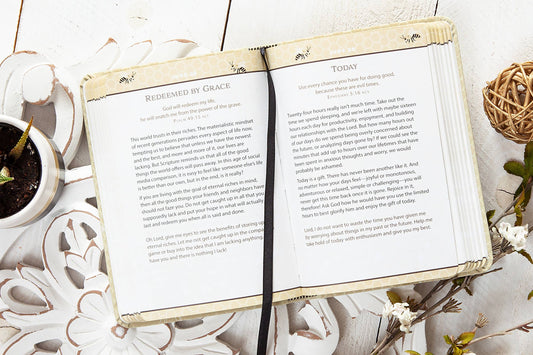 REDEEMED BY GRACE
God will redeem my life.
he will snatch me from the power of the grave.
PSALM 49:15 NLT
This world trusts in their riches. The materialistic mindset
of recent generations pervades every aspect of life now,
tempting us to believe that unless we have the newest
and the best, and more and more of it, our lives are
lacking. But Scripture reminds us that all of the best
things the world offers will pass away. In this age of social
media comparison, it is easy to feel like someone else's life
is better than our own, but in the end, is it really?
If you are living with the goal of eternal riches in mind,
then all the good things your friends and neighbors have
should not faze you. Do not get caught up in all that you
supposedly lack and put your hope in what will actually
last and redeem you when all is said and done.
Oh Lord, give me eyes to see the benefits of storing up
eternal riches. Let me not get caught up in the comparison
game or buy into the idea that I am lacking anything.
have you and there is nothing I lack!
TODAY
Use every chance you have for doing good,
because these are evil times.
EPHESIANS 5:16 NLV
Twenty four hours really isn't much time. Take out the
time we spend sleeping, and we're left with maybe sixteen
hours each day for productivity, enjoyment, and building
our relationships with the Lord. But how many hours out
of our days do we spend being overly concerned about
the future, or analyzing days gone by? If we could see the
minutes that add up to hours over our lifetimes that have
been spent in anxious thoughts and worry, we would
probably be ashamed.
Today is a gift. There has never been another like it. And
no matter how your days feel—joyful or monotonous,
adventurous or relaxed, simple or challenging—you will
never get this time back once it is gone. Rejoice in it,
therefore! Ask God how he would have you use the limited
hours to best glorify him and enjoy the gift of today.
Lord, I do not want to waste the time you have given me
by worrying about things in my past or my future. Help me
take hold of today with enthusiasm and give you my best.